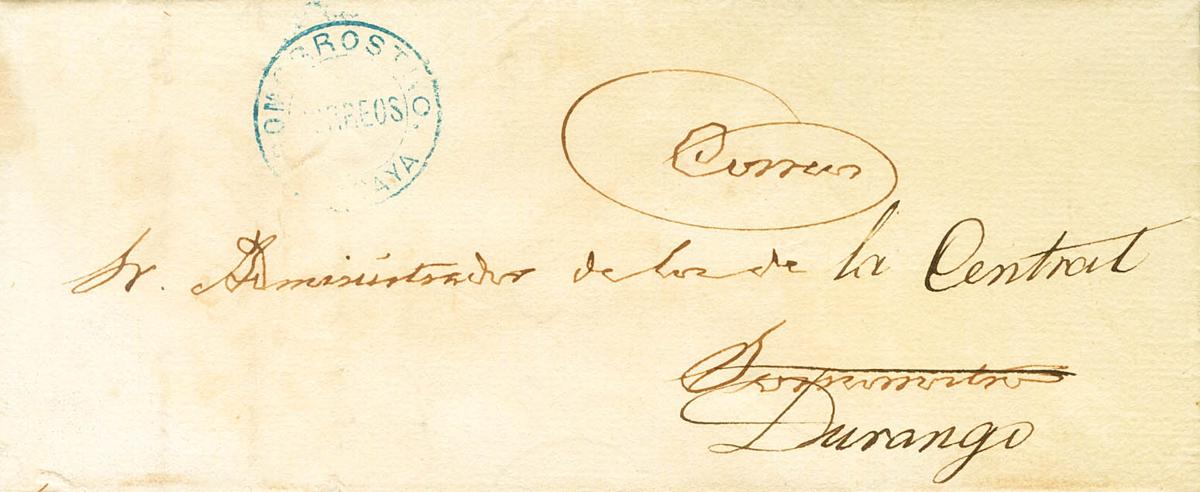 CORREOS
Correos
Sr. Administrador de los de la Central
Durango